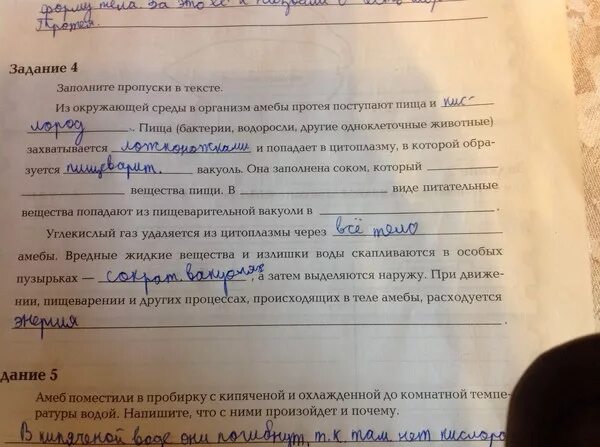 форму тела. За это её и назвали в честь
Протея.
Задание 4
Заполните пропуски в тексте.
Из окружающей среды в организм амебы протея поступают пища и кис-
лород. Пища (бактерии, водоросли, другие одноклеточные животные)
захватывается ложноножками и попадает в цитоплазму, в которой обра-
зуется пищеварит. вакуоль. Она заполнена соком, который
вещества пищи. В виде питательные
вещества попадают из пищеварительной вакуоли в .
Углекислый газ удаляется из цитоплазмы через всё тело
амебы. Вредные жидкие вещества и излишки воды скапливаются в особых
пузырьках — сократ. вакуолях, а затем выделяются наружу. При движе-
нии, пищеварении и других процессах, происходящих в теле амебы, расходуется
энергия .
дание 5
Амеб поместили в пробирку с кипяченой и охлажденной до комнатной темпе-
ратуры водой. Напишите, что с ними произойдет и почему.
В кипяченой воде они погибнут, т.к. там нет кислоро